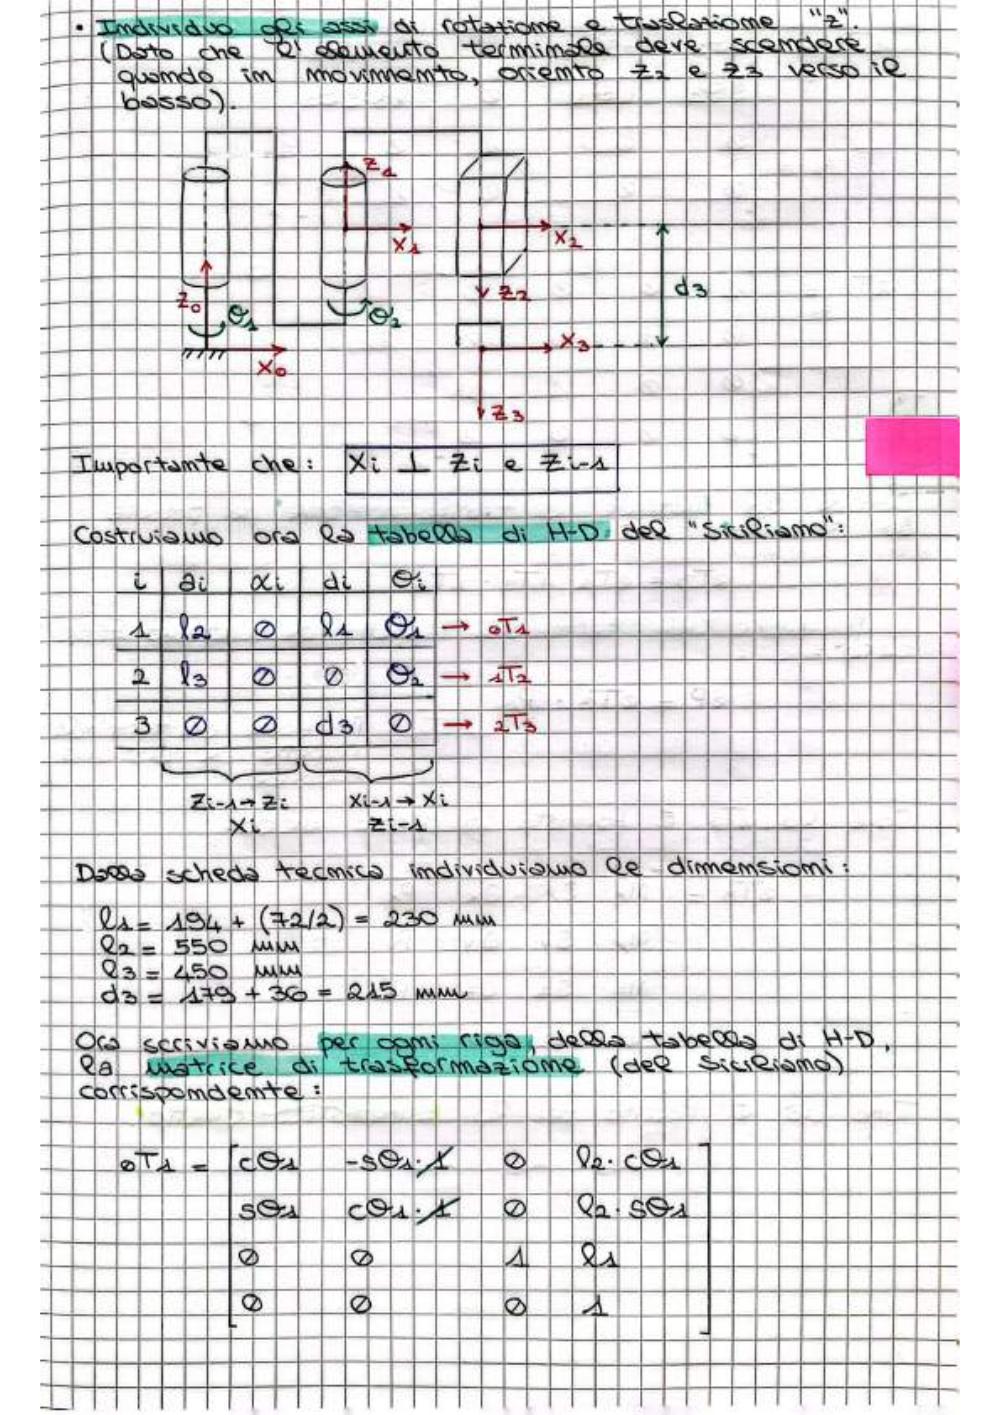 • Individuo gli assi di rotazione e traslazione "z".
(Dato che l'elemento terminale deve scendere
quando in movimento, oriento z2 e z3 verso il
basso).
z1
x1
x2
z2
d3
z0
θ1
θ2
x0
x3
z3
Importante che: xi ⊥ zi e zi-1
Costruiamo ora la tabella di H-D del "Siciliano":
i ai αi di θi
1 l2 0 l1 θ1 → 0T1
2 l3 0 0 θ2 → 1T2
3 0 0 d3 0 → 2T3
zi-1→zi xi-1→xi
xi zi-1
Dalla scheda tecnica individuiamo le dimensioni:
l1 = 194 + (72/2) = 230 mm
l2 = 550 mm
l3 = 450 mm
d3 = 179 + 36 = 215 mm
Ora scriviamo per ogni riga, della tabella di H-D,
la matrice di trasformazione (del Siciliano)
corrispondente:
0T1 = [cθ1 -sθ1·1 0 l2·cθ1
sθ1 cθ1·1 0 l2·sθ1
0 0 1 l1
0 0 0 1]